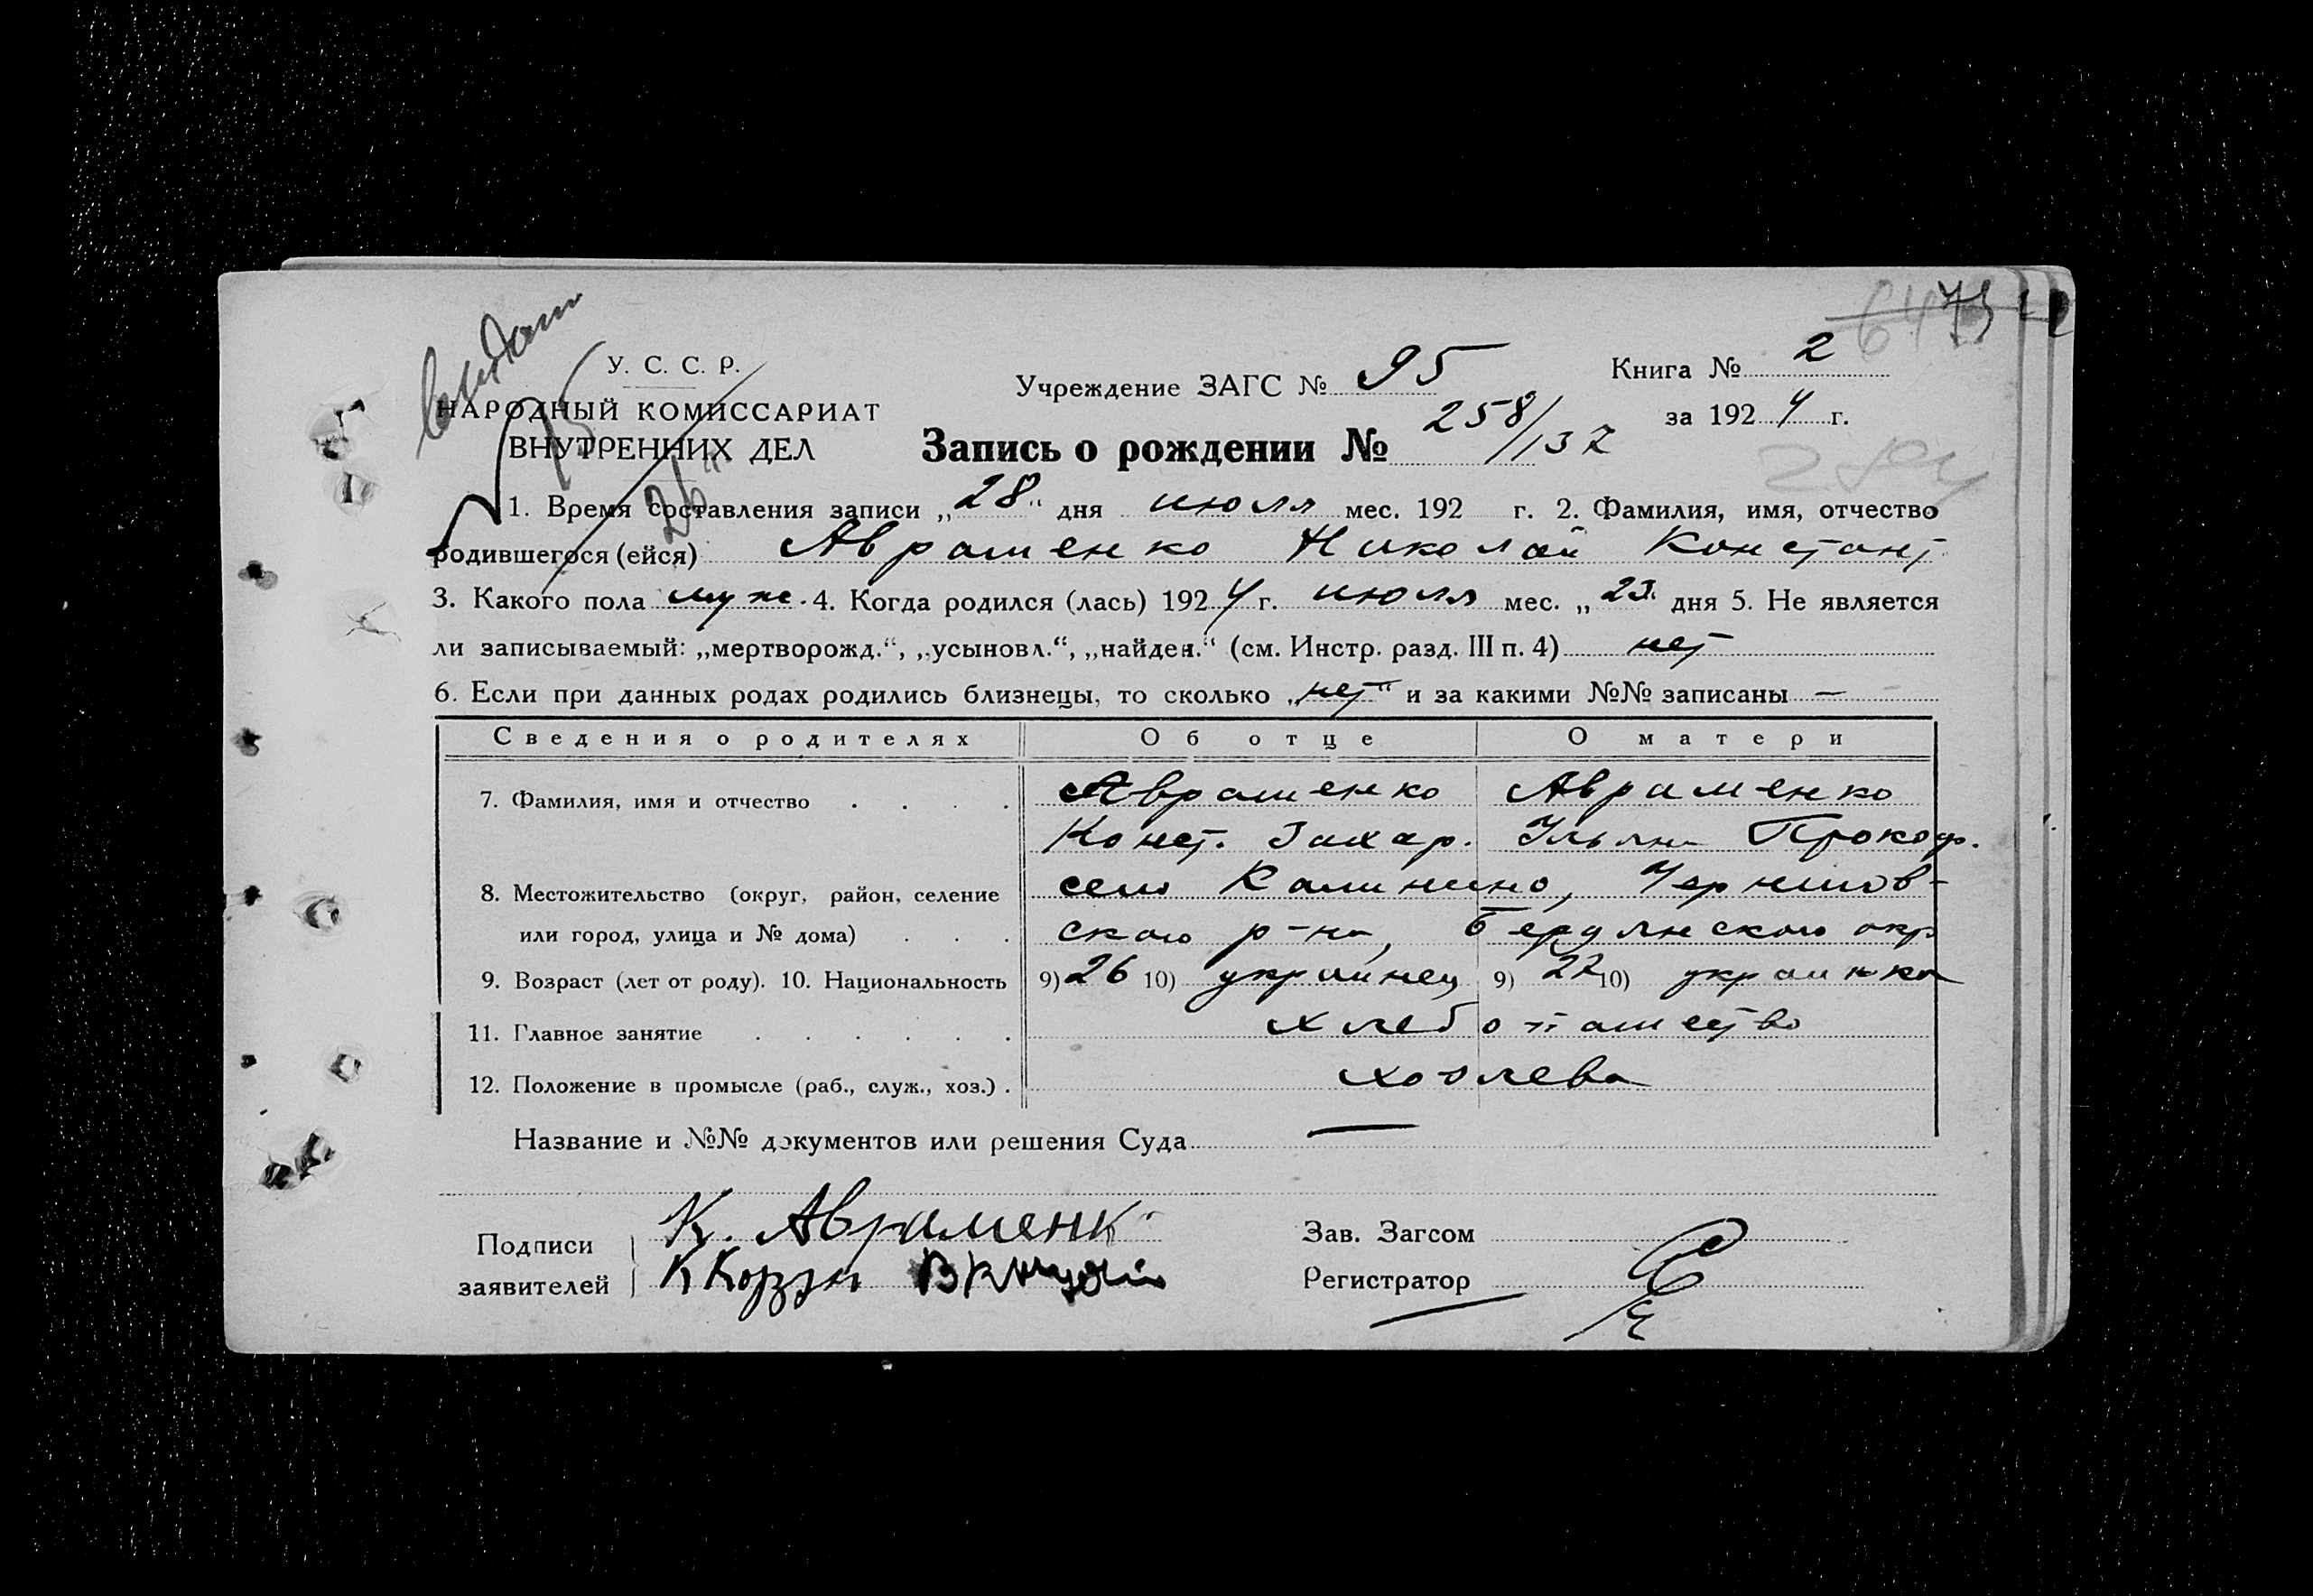 6473
У. С. С. Р.
НАРОДНЫЙ КОМИССАРИАТ
ВНУТРЕННИХ ДЕЛ
Учреждение ЗАГС № 95
Книга № 2
за 1924 г.
Запись о рождении № 258/137
1. Время составления записи „28“ дня июля мес. 192 г. 2. Фамилия, имя, отчество
родившегося (ейся) Авраменко Николай Констант
3. Какого пола муж. 4. Когда родился (лась) 1924 г. июля мес. „23. дня 5. Не является
ли записываемый: „мертворожд.“, „усыновл.“, „найден.“ (см. Инстр. разд. III п. 4) нет
6. Если при данных родах родились близнецы, то сколько „нет“ и за какими №№ записаны —
Сведения о родителях Об отце О матери
7. Фамилия, имя и отчество Авраменко Авраменко
Конст. Захар. Ульяна Прокоф.
8. Местожительство (округ, район, селение село Калинино, Чернигов-
или город, улица и № дома) ского р-на, Бердянского окр
9. Возраст (лет от роду). 10. Национальность 9) 26 10) украинец 9) 22 10) украинка
11. Главное занятие хлебопашество
12. Положение в промысле (раб., служ., хоз.) хозяева
Название и №№ документов или решения Суда —
Подписи К. Авраменк Зав. Загсом
заявителей Регистратор